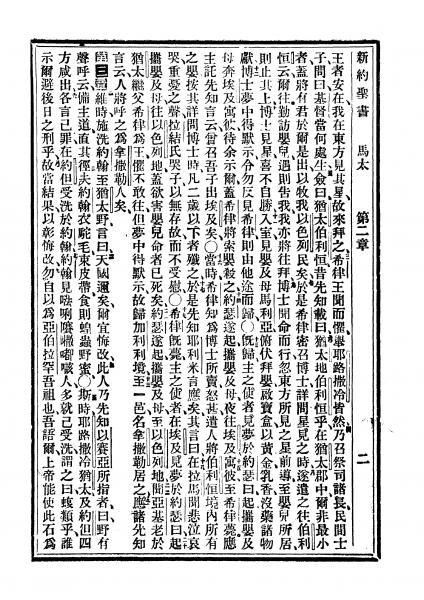 新約聖書　馬太　第二章　二
王者安在我在東方見其星故來拜之希律王聞而懼舉耶路撒冷皆然乃召祭司諸長民間士
子問曰基督當何處生僉曰猶太伯利恒昔先知載曰猶太地伯利恒乎在猶太郡中爾非最小
者蓋將有君於爾是出以牧我以色列民矣於是希律密召博士詳問星見之時遂遣之往伯利
恒云爾往勤訪嬰兒遇則告我我亦將往拜博士聞命而行忽東方所見之星前導至嬰兒所居
則止其上博士見星喜不自勝入室見嬰及母馬利亞俯伏拜嬰啟寶盒以黃金乳香沒藥諸物
獻博士夢中得默示令勿反見希律則由他途而歸○旣歸主之使者見夢於約瑟曰起攜嬰及
母奔埃及寓彼待余示爾蓋希律將索嬰殺之約瑟遂起攜嬰及母夜往埃及寓彼至希律薨應
主託先知言云曾召吾子出埃及矣○當時希律知爲博士所賣怒甚遣人將伯利恒境內所有
之嬰按其詳問博士時凡二歲以下者殲之於是先知耶利米言應矣其言曰在拉馬聞悲泣哀
哭重憂之聲拉結氏哭子以無存故而不受慰○希律旣薨主之使者在埃及見夢於約瑟曰起
攜嬰及母往以色列地蓋欲害嬰兒命者已死矣約瑟遂起攜嬰及母至以色列地聞亞基老於
猶太繼父希律爲王懼不敢往但夢中得默示故歸加利利境至一邑名拿撒勒居之應諸先知
言云人將呼之爲拿撒勒人矣
第三章維時施洗約翰至猶太野言曰天國邇矣爾宜悔改此人乃先知以賽亞所指者曰野有
聲呼云備主道直其徑夫約翰衣駝毛束皮帶食則蝗蟲野蜜○斯時耶路撒冷猶太及約但四
方咸出各言己罪在約但受洗於約翰約翰見人多就己受洗謂之曰蝮類乎誰
示爾避後日之刑乎故當結果以彰悔改勿自以爲亞伯拉罕吾祖也吾語爾上帝能使此石爲